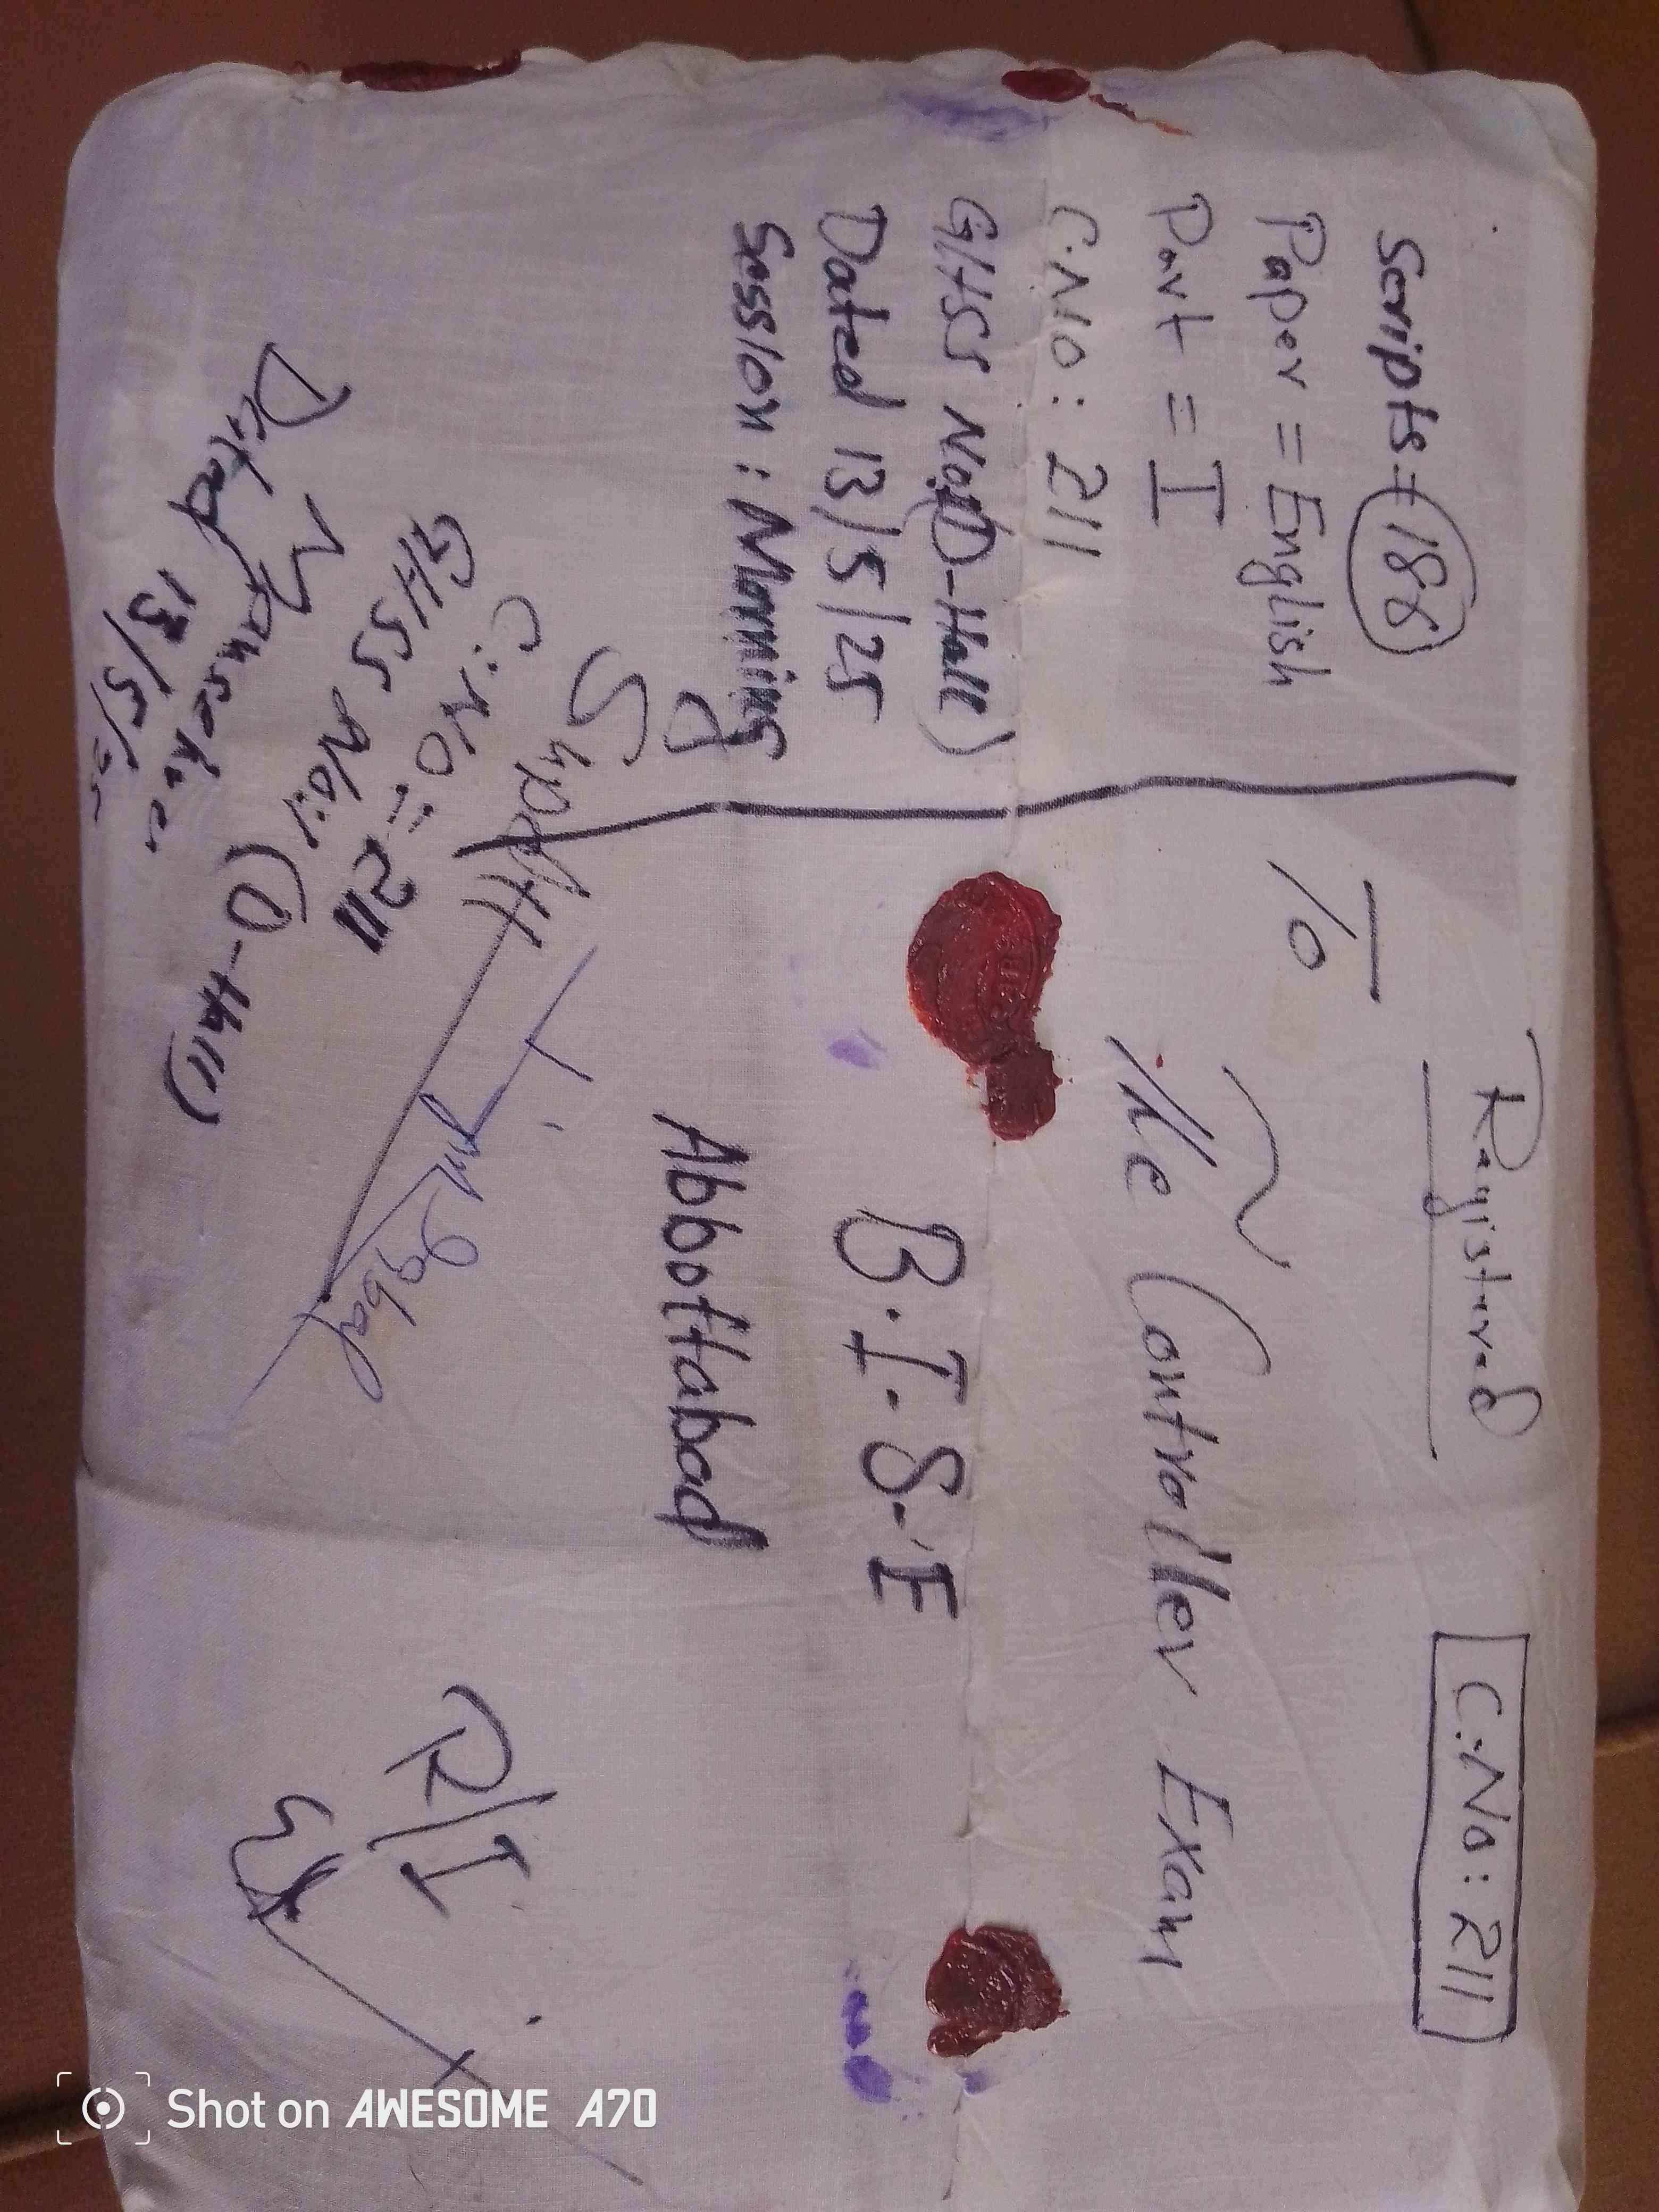 Registered
C.No: 211
Scripts = 186
Paper = English
Part = I
C.No: 211
GHSS No.1 (D-Hall)
Dated 13/5/25
Session: Morning
To
The Controller Exam
B.I.S.E
Abbottabad
Supdtt
C.No:= 211
GHSS No:1
(D-Hall)
Mansehra
Dated 13/5/25
Iqbal
R/I
Shot on AWESOME A70